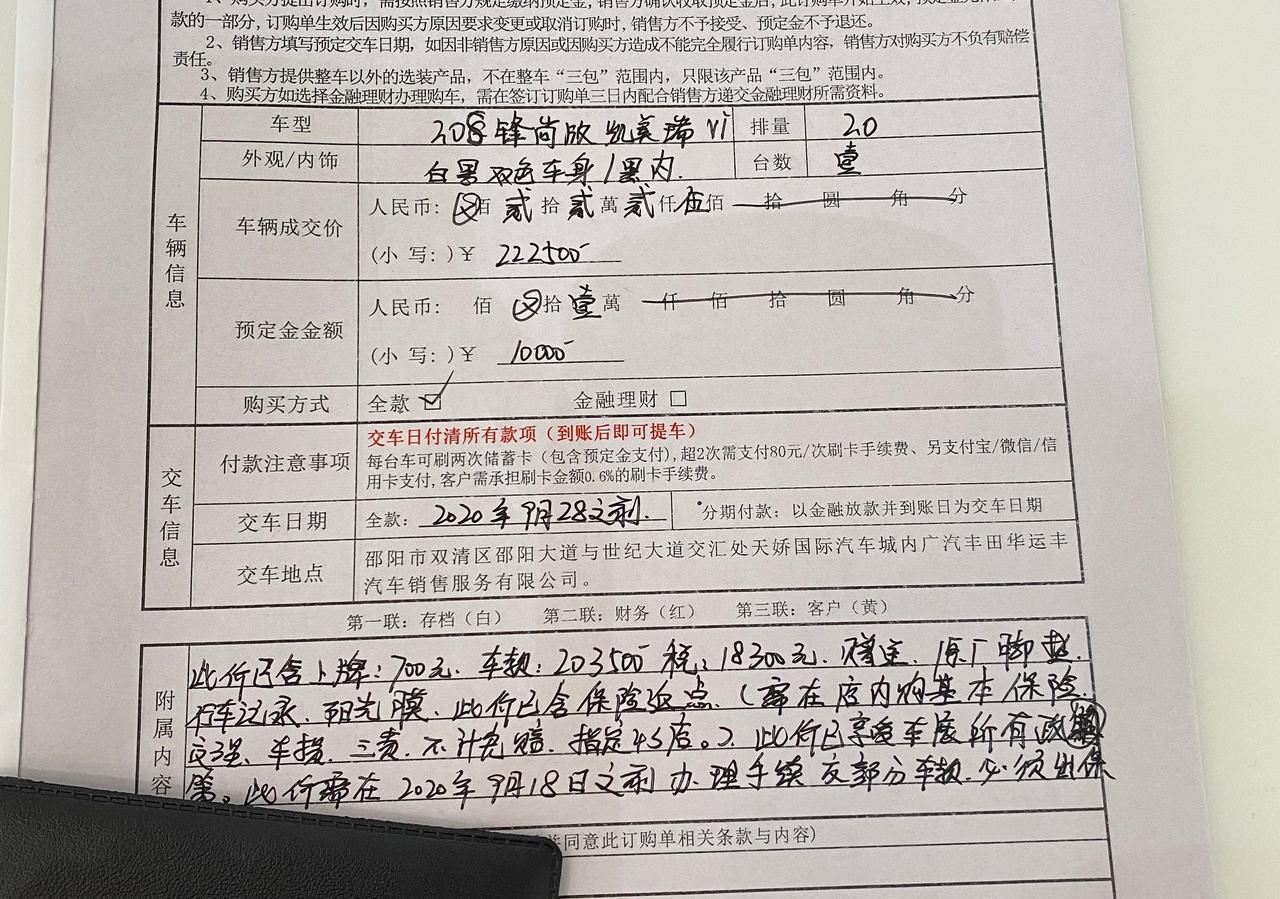 1、购买方提出订购时，需按照销售方规定缴纳预定金，销售方确认收取预定金后，此订购单开始生效，预定金
款的一部分，订购单生效后因购买方原因要求变更或取消订购时，销售方不予接受、预定金不予退还。
2、销售方填写预定交车日期，如因非销售方原因或因购买方造成不能完全履行订购单内容，销售方对购买方不负有赔偿
责任。
3、销售方提供整车以外的选装产品，不在整车“三包”范围内，只限该产品“三包”范围内。
4、购买方如选择金融理财办理购车，需在签订订购单三日内配合销售方递交金融理财所需资料。
车辆信息
车型 208 锋尚版 凯美瑞 排量 2.0
外观/内饰 白黑双色车身/黑内. 台数 壹
车辆成交价 人民币: 佰 贰 拾 贰 萬 贰 仟 伍 佰 拾 圆 角 分
(小 写: )￥ 222500
预定金金额 人民币: 佰 拾 壹 萬 仟 佰 拾 圆 角 分
(小 写: )￥ 10000
购买方式 全款 ☑ 金融理财 □
交车信息
付款注意事项 交车日付清所有款项（到账后即可提车）
每台车可刷两次储蓄卡（包含预定金支付）,超2次需支付80元/次刷卡手续费、另支付宝/微信/信
用卡支付,客户需承担刷卡金额0.6%的刷卡手续费。
交车日期 全款: 2020年9月28之前. 分期付款: 以金融放款并到账日为交车日期
交车地点 邵阳市双清区邵阳大道与世纪大道交汇处天娇国际汽车城内广汽丰田华运丰
汽车销售服务有限公司。
第一联: 存档（白） 第二联: 财务（红） 第三联: 客户（黄）
附属内容
此价已含上牌: 700元. 车款: 203500 税: 18300元. 赠送. 原厂脚垫.
行车记录. 阳光膜. 此价已含保险返点.（需在店内购基本保险.
交强、车损、三责、不计免赔. 指定4S店。). 此价已享受车展所有政
策。此价需在2020年9月18日之前办理手续交部分车款. 必须出保
并同意此订购单相关条款与内容)